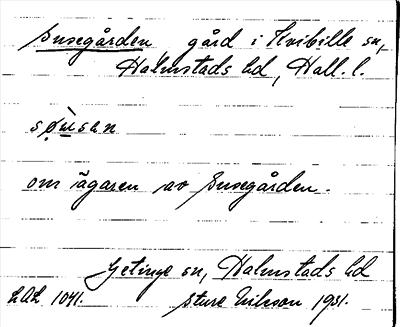 Susegården, gård i Kvibille sn,
Halmstads hd, Hall. l.
sø̀usan
om ägaren av Susegården.
Getinge sn, Halmstads hd
LAL 1041. Sture Nilsson 1931.